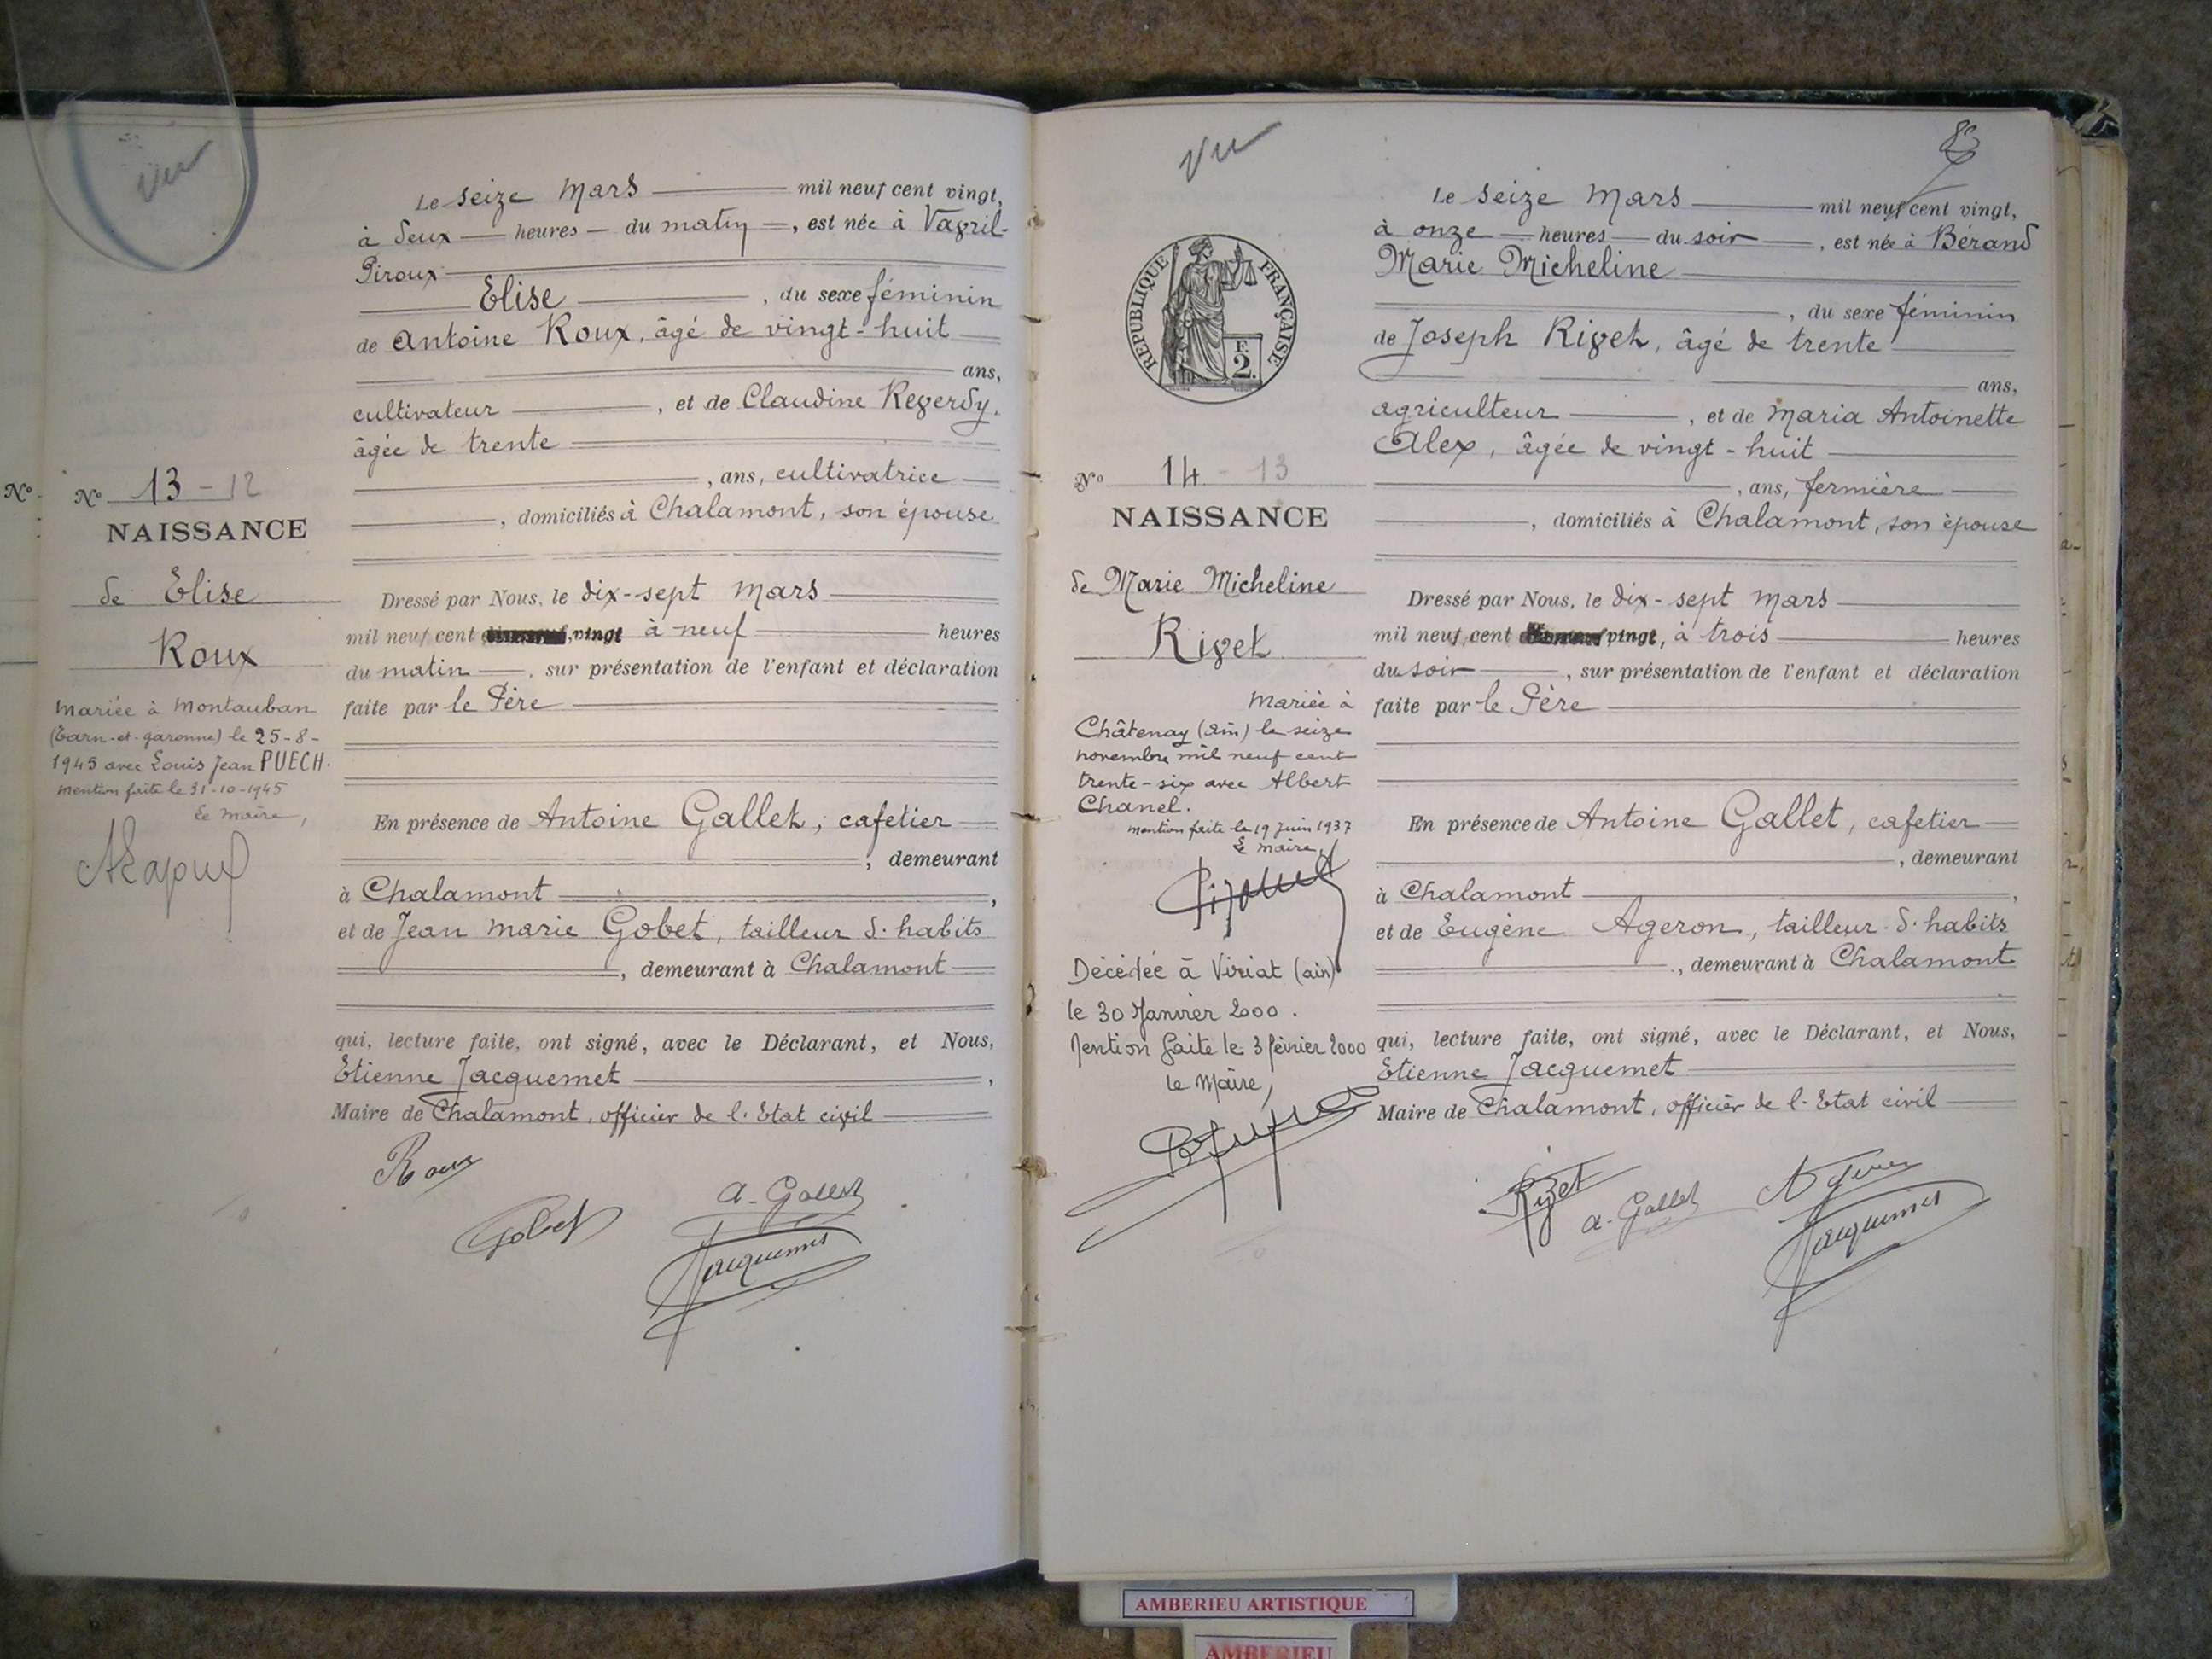 vu
Le seize Mars mil neuf cent vingt,
à deux heures du matin, est née à Vavril-
Piroux
Elise, du sexe féminin
de Antoine Roux, âgé de vingt-huit
ans,
cultivateur, et de Claudine Reverdy.
âgée de trente
, ans, cultivatrice
, domiciliés à Chalamont, son épouse.
Nº
Nº 13 - 12
NAISSANCE
de Elise
Roux
Mariée à Montauban
(Tarn-et-garonne) le 25-8-
1945 avec Louis Jean PUECH.
mention faite le 31-10-1945
Le maire,
Dressé par Nous, le dix-sept Mars
mil neuf cent vingt à neuf heures
du matin, sur présentation de l'enfant et déclaration
faite par le Père
En présence de Antoine Gallet, cafetier
, demeurant
à Chalamont,
et de Jean Marie Gobet, tailleur d. habits
, demeurant à Chalamont
qui, lecture faite, ont signé, avec le Déclarant, et Nous,
Etienne Jacquemet,
Maire de Chalamont, officier de l. Etat civil
Roux
Gobet
a. Gallet
Jacquemet
vu
83
RÉPUBLIQUE FRANÇAISE
F.
2.
Le seize Mars mil neuf cent vingt,
à onze heures du soir, est née à Bérand
Marie Micheline
, du sexe féminin
de Joseph Rivet, âgé de trente
ans,
agriculteur, et de Maria Antoinette
Alex, âgée de vingt-huit
, ans, fermière
, domiciliés à Chalamont, son épouse
Nº 14 - 13
NAISSANCE
de Marie Micheline
Rivet
Mariée à
Châtenay (ain) le seize
novembre mil neuf cent
trente-six avec Albert
Chanel.
mention faite le 19 juin 1937
Le maire,
Décédée à Viriat (ain)
le 30 Janvier 2000.
Mention faite le 3 février 2000
le Maire,
Dressé par Nous, le dix-sept Mars
mil neuf cent vingt, à trois heures
du soir, sur présentation de l'enfant et déclaration
faite par le Père
En présence de Antoine Gallet, cafetier
, demeurant
à Chalamont,
et de Eugène Ageron, tailleur d. habits
, demeurant à Chalamont
qui, lecture faite, ont signé, avec le Déclarant, et Nous,
Etienne Jacquemet
Maire de Chalamont, officier de l. Etat civil
Rivet
a. Gallet
Ageron
Jacquemet
AMBERIEU ARTISTIQUE
AMBERIEU